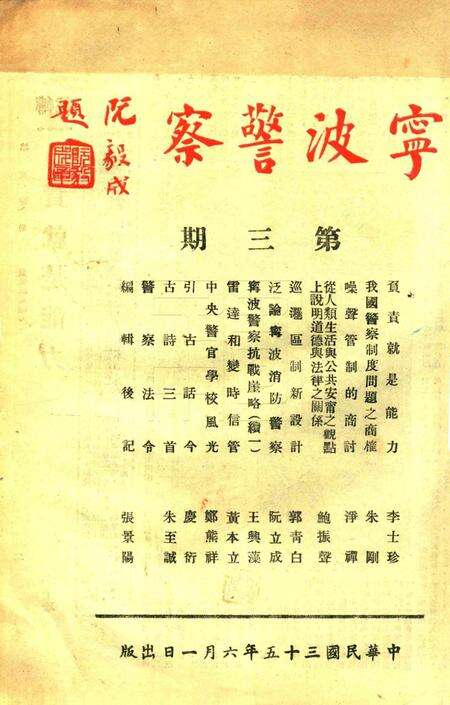 寧波警察
阮毅成
題
第三期
負責就是能力 李士珍
我國警察制度問題之商榷 朱剛
噪聲管制的商討 淨禪
從人類生活與公共安甯之觀點
上說明道德與法律之關係 鮑振聲
巡邏區制新設計 郭青白
泛論甯波消防警察 阮立成
甯波警察抗戰崖略(續一) 王興藻
雷達和變時信管 黃本立
中央警官學校風光 鄭熊祥
引古話今 慶衍
古詩三首 朱至誠
警察法令
編輯後記 張景陽
中華民國三十五年六月一日出版